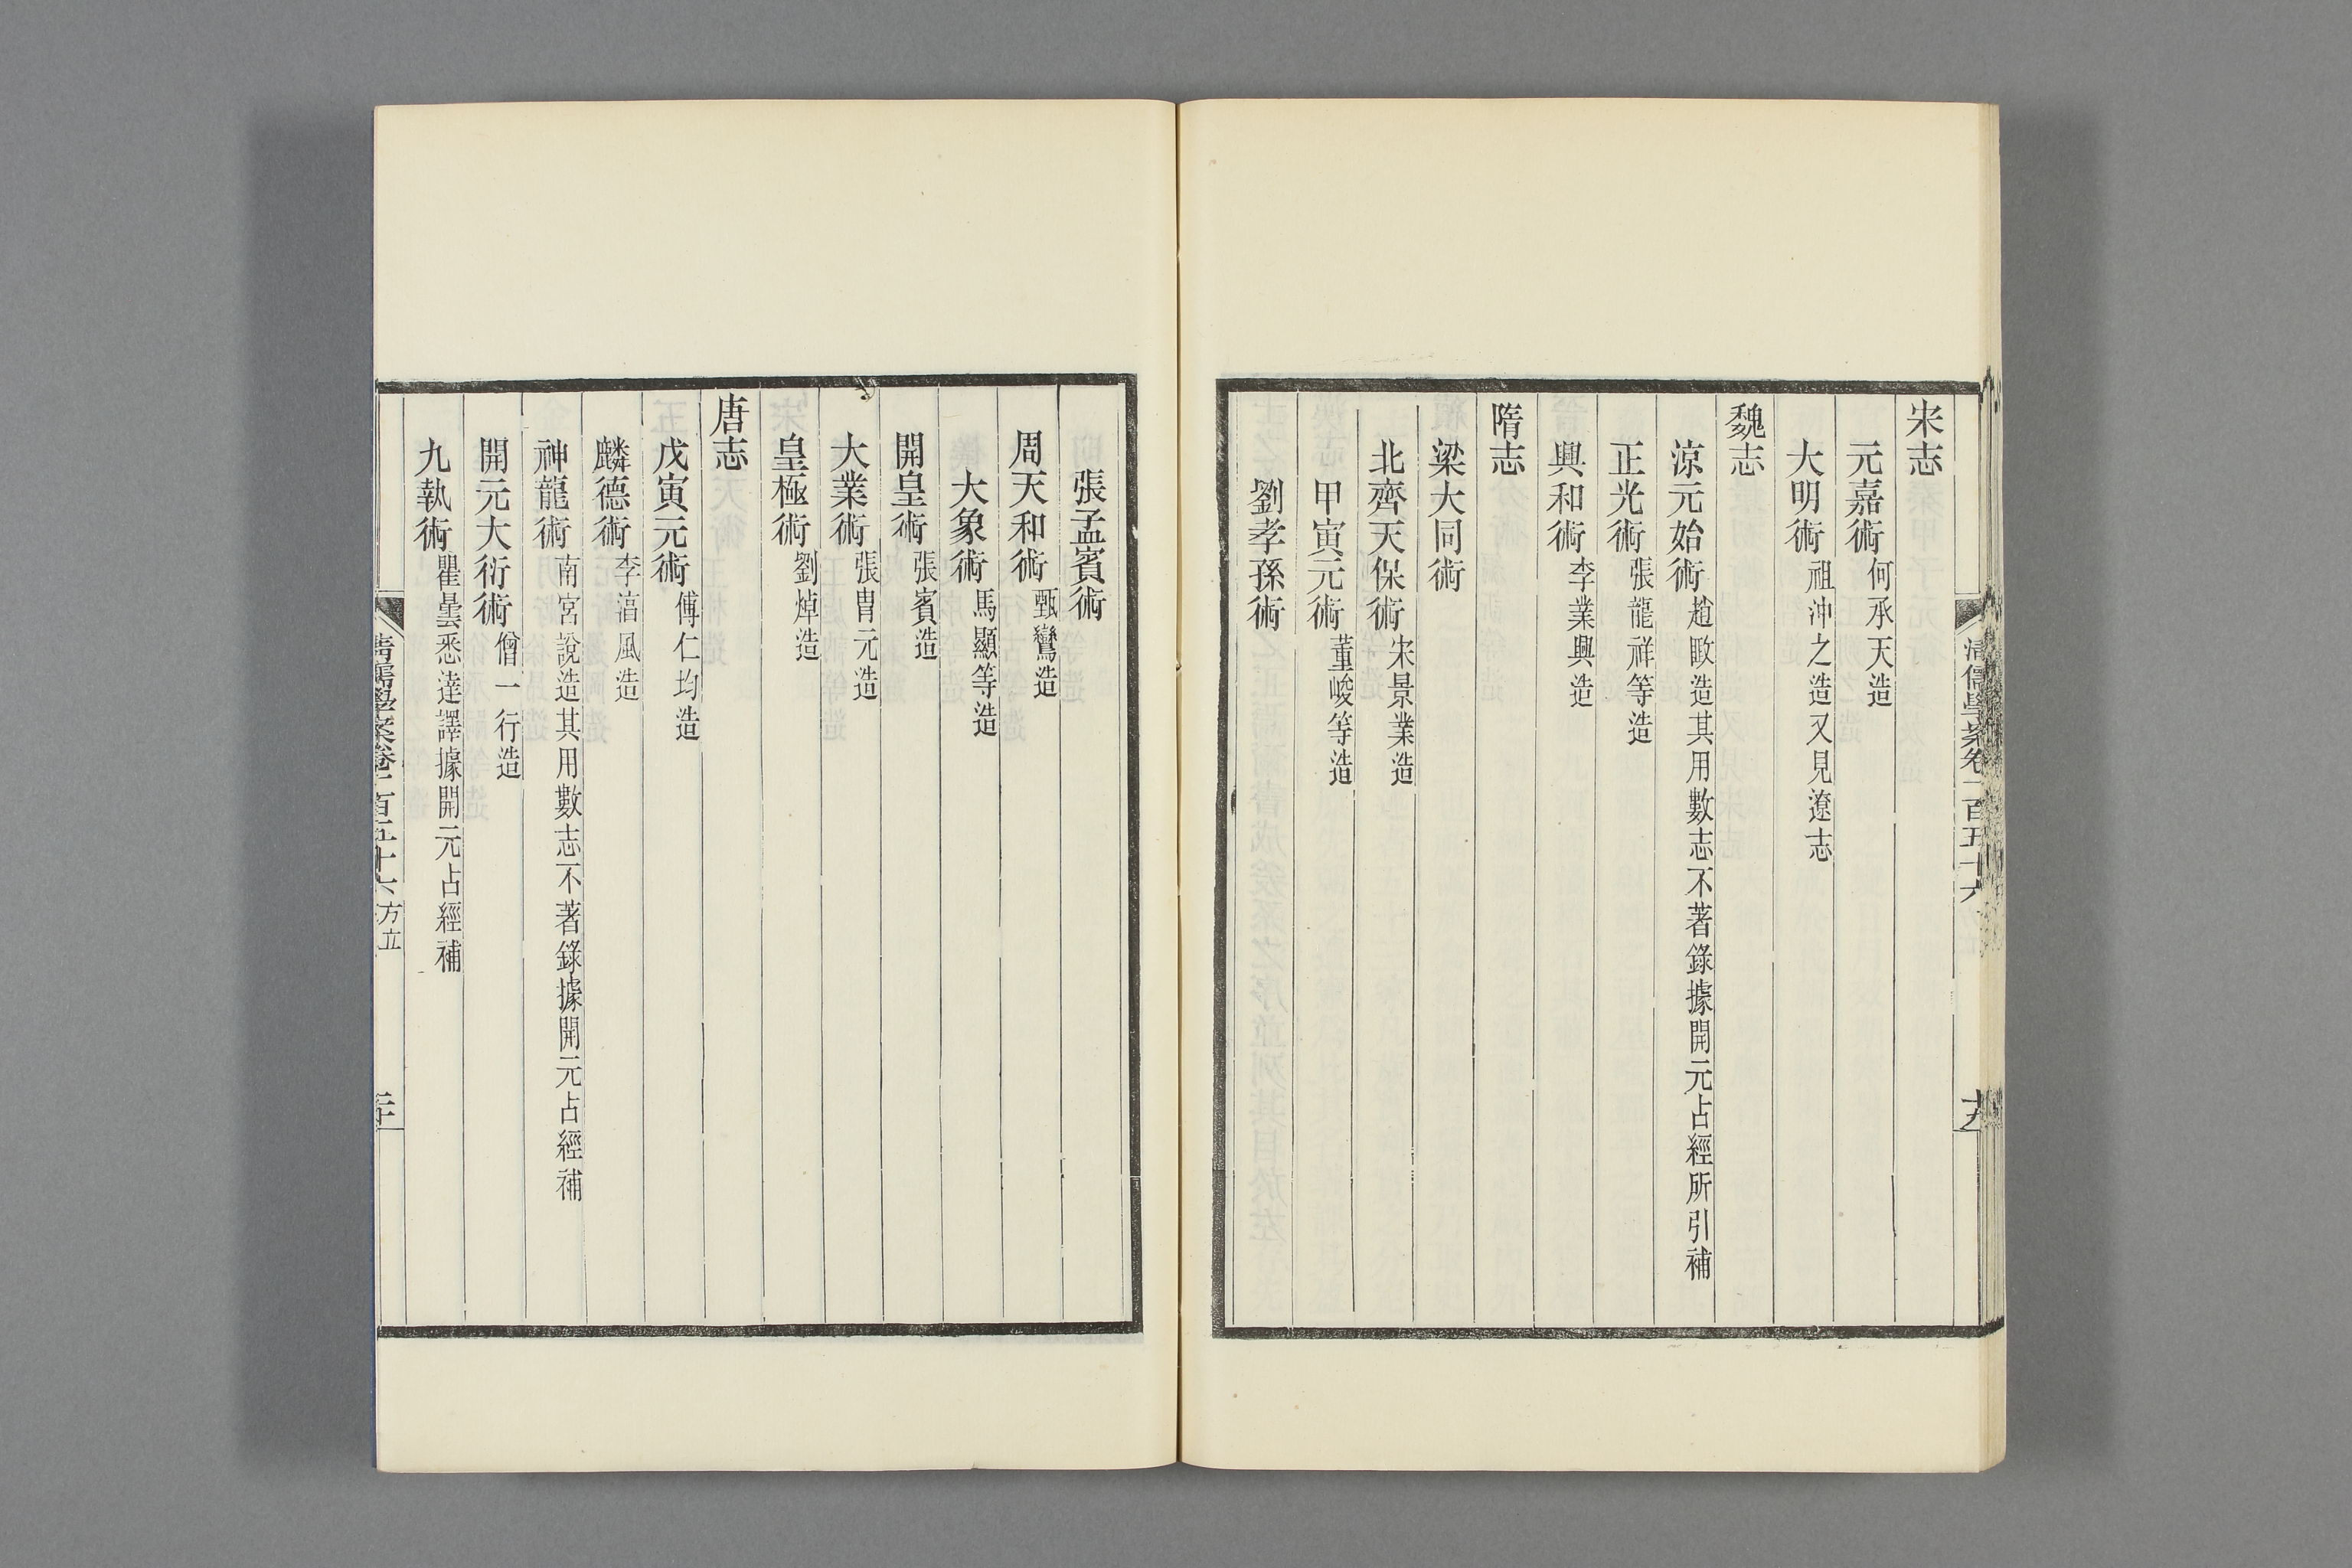 宋志
元嘉術何承天造
大明術祖沖之造又見遼志
魏志
涼元始術趙㪉造其用數志不著錄據開元占經所引補
正光術張龍祥等造
興和術李業興造
隋志
梁大同術
北齊天保術宋景業造
甲寅元術董峻等造
劉孝孫術
張孟賓術
周天和術甄鸞造
大象術馬顯等造
開皇術張賓造
大業術張胄元造
皇極術劉焯造
唐志
戊寅元術傅仁均造
麟德術李淳風造
神龍術南宮說造其用數志不著錄據開元占經補
開元大衍術僧一行造
九執術瞿曇悉達譯據開元占經補
清儒學案卷一百五十六 方立